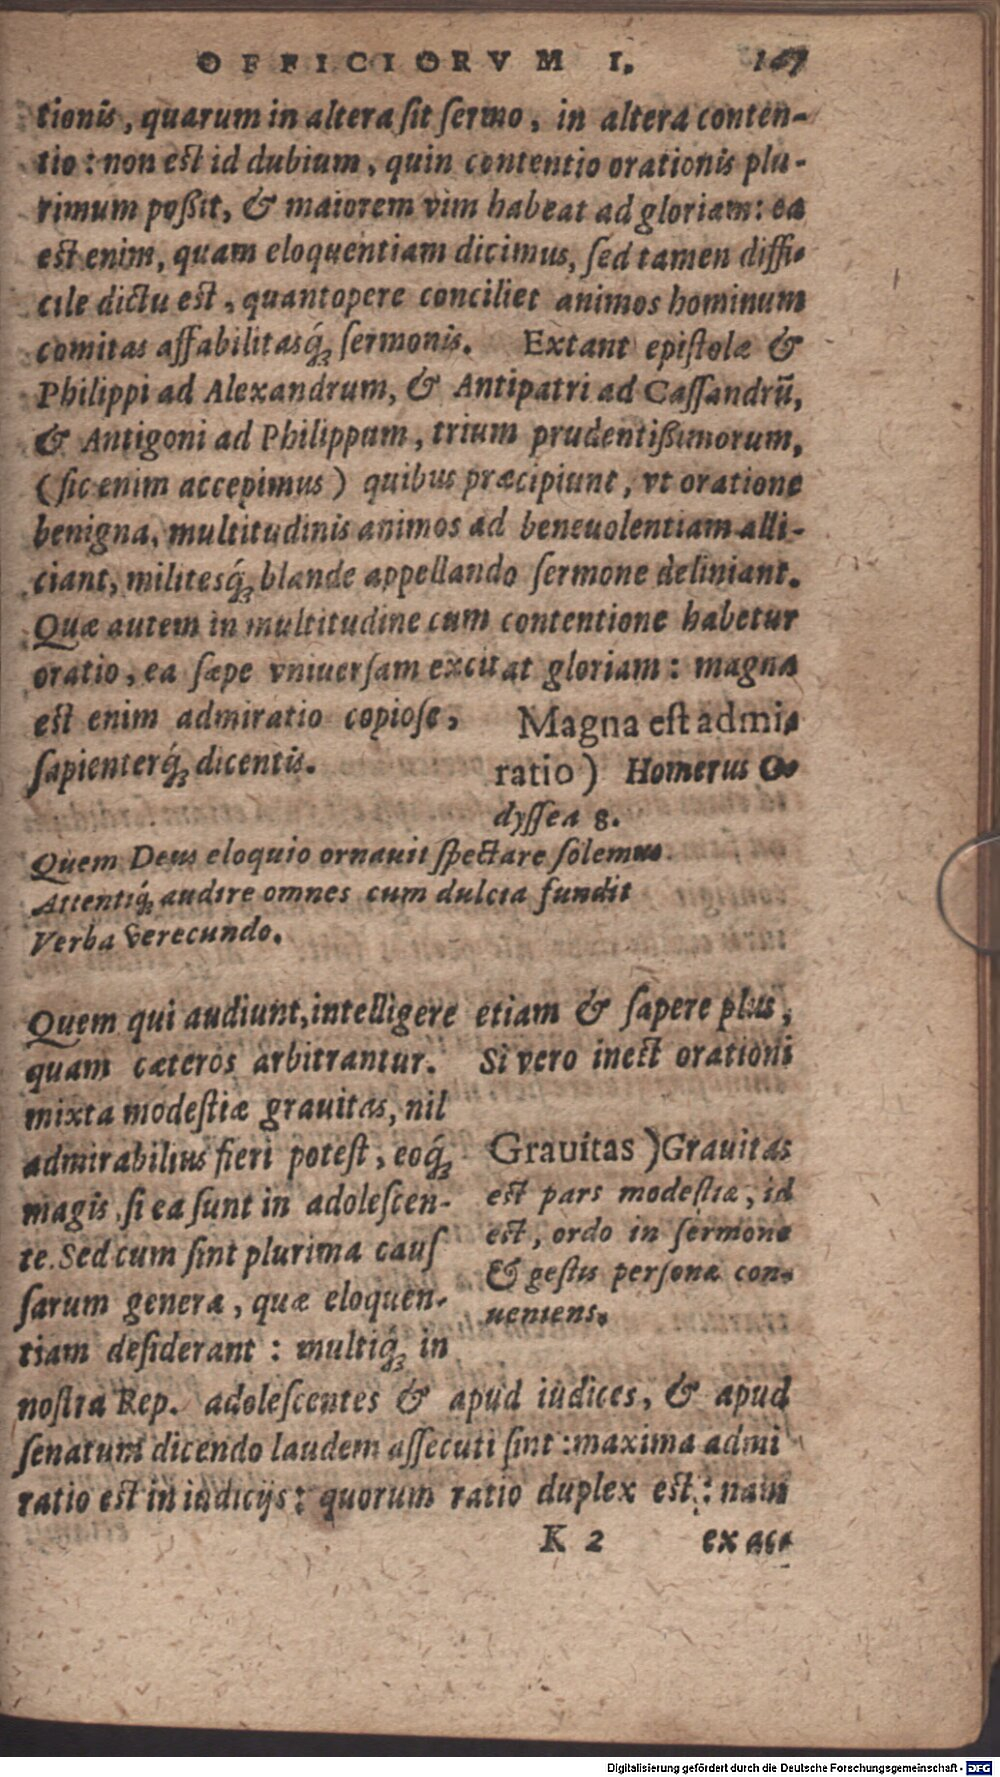 OFFICIORVM I. 147
tionis, quarum in altera ſit ſermo, in altera conten-
tio: non est id dubium, quin contentio orationis plu-
rimum poßit, & maiorem vim habeat ad gloriam: ea
est enim, quam eloquentiam dicimus, ſed tamen diffi-
cile dictu est, quantopere conciliet animos hominum
comitas affabilitasq́; ſermonis. Extant epiſtolæ &
Philippi ad Alexandrum, & Antipatri ad Caſſandrū,
& Antigoni ad Philippum, trium prudentißimorum,
(ſic enim accepimus) quibus præcipiunt, vt oratione
benigna, multitudinis animos ad beneuolentiam alli-
ciant, militesq́; blande appellando ſermone deliniant.
Quæ autem in multitudine cum contentione habetur
oratio, ea ſæpe vniuerſam excitat gloriam: magna
est enim admiratio copioſe,
ſapienterq́; dicentis.
Magna est admi-
ratio) Homerus O-
dyſſea 8.
Quem Deus eloquio ornauit ſpectare ſolemus.
Attentiq́; audire omnes cum dulcia fundit
Verba verecundo.
Quem qui audiunt, intelligere etiam & ſapere plus,
quam cæteros arbitrantur. Si vero inest orationi
mixta modeſtiæ grauitas, nil
admirabilius fieri poteſt, eoq́;
magis, ſi ea ſunt in adoleſcen-
te. Sed cum ſint plurima cauſ
ſarum genera, quæ eloquen-
tiam deſiderant: multiq́; in
Grauitas) Grauitas
est pars modeſtiæ, id
est, ordo in ſermone
& geſtu perſonæ con-
ueniens.
noſtra Rep. adoleſcentes & apud iudices, & apud
ſenatum dicendo laudem aſſecuti ſint: maxima admi
ratio est in iudicijs: quorum ratio duplex est: nam
K 2 ex ac-
Digitalisierung gefördert durch die Deutsche Forschungsgemeinschaft - DFG